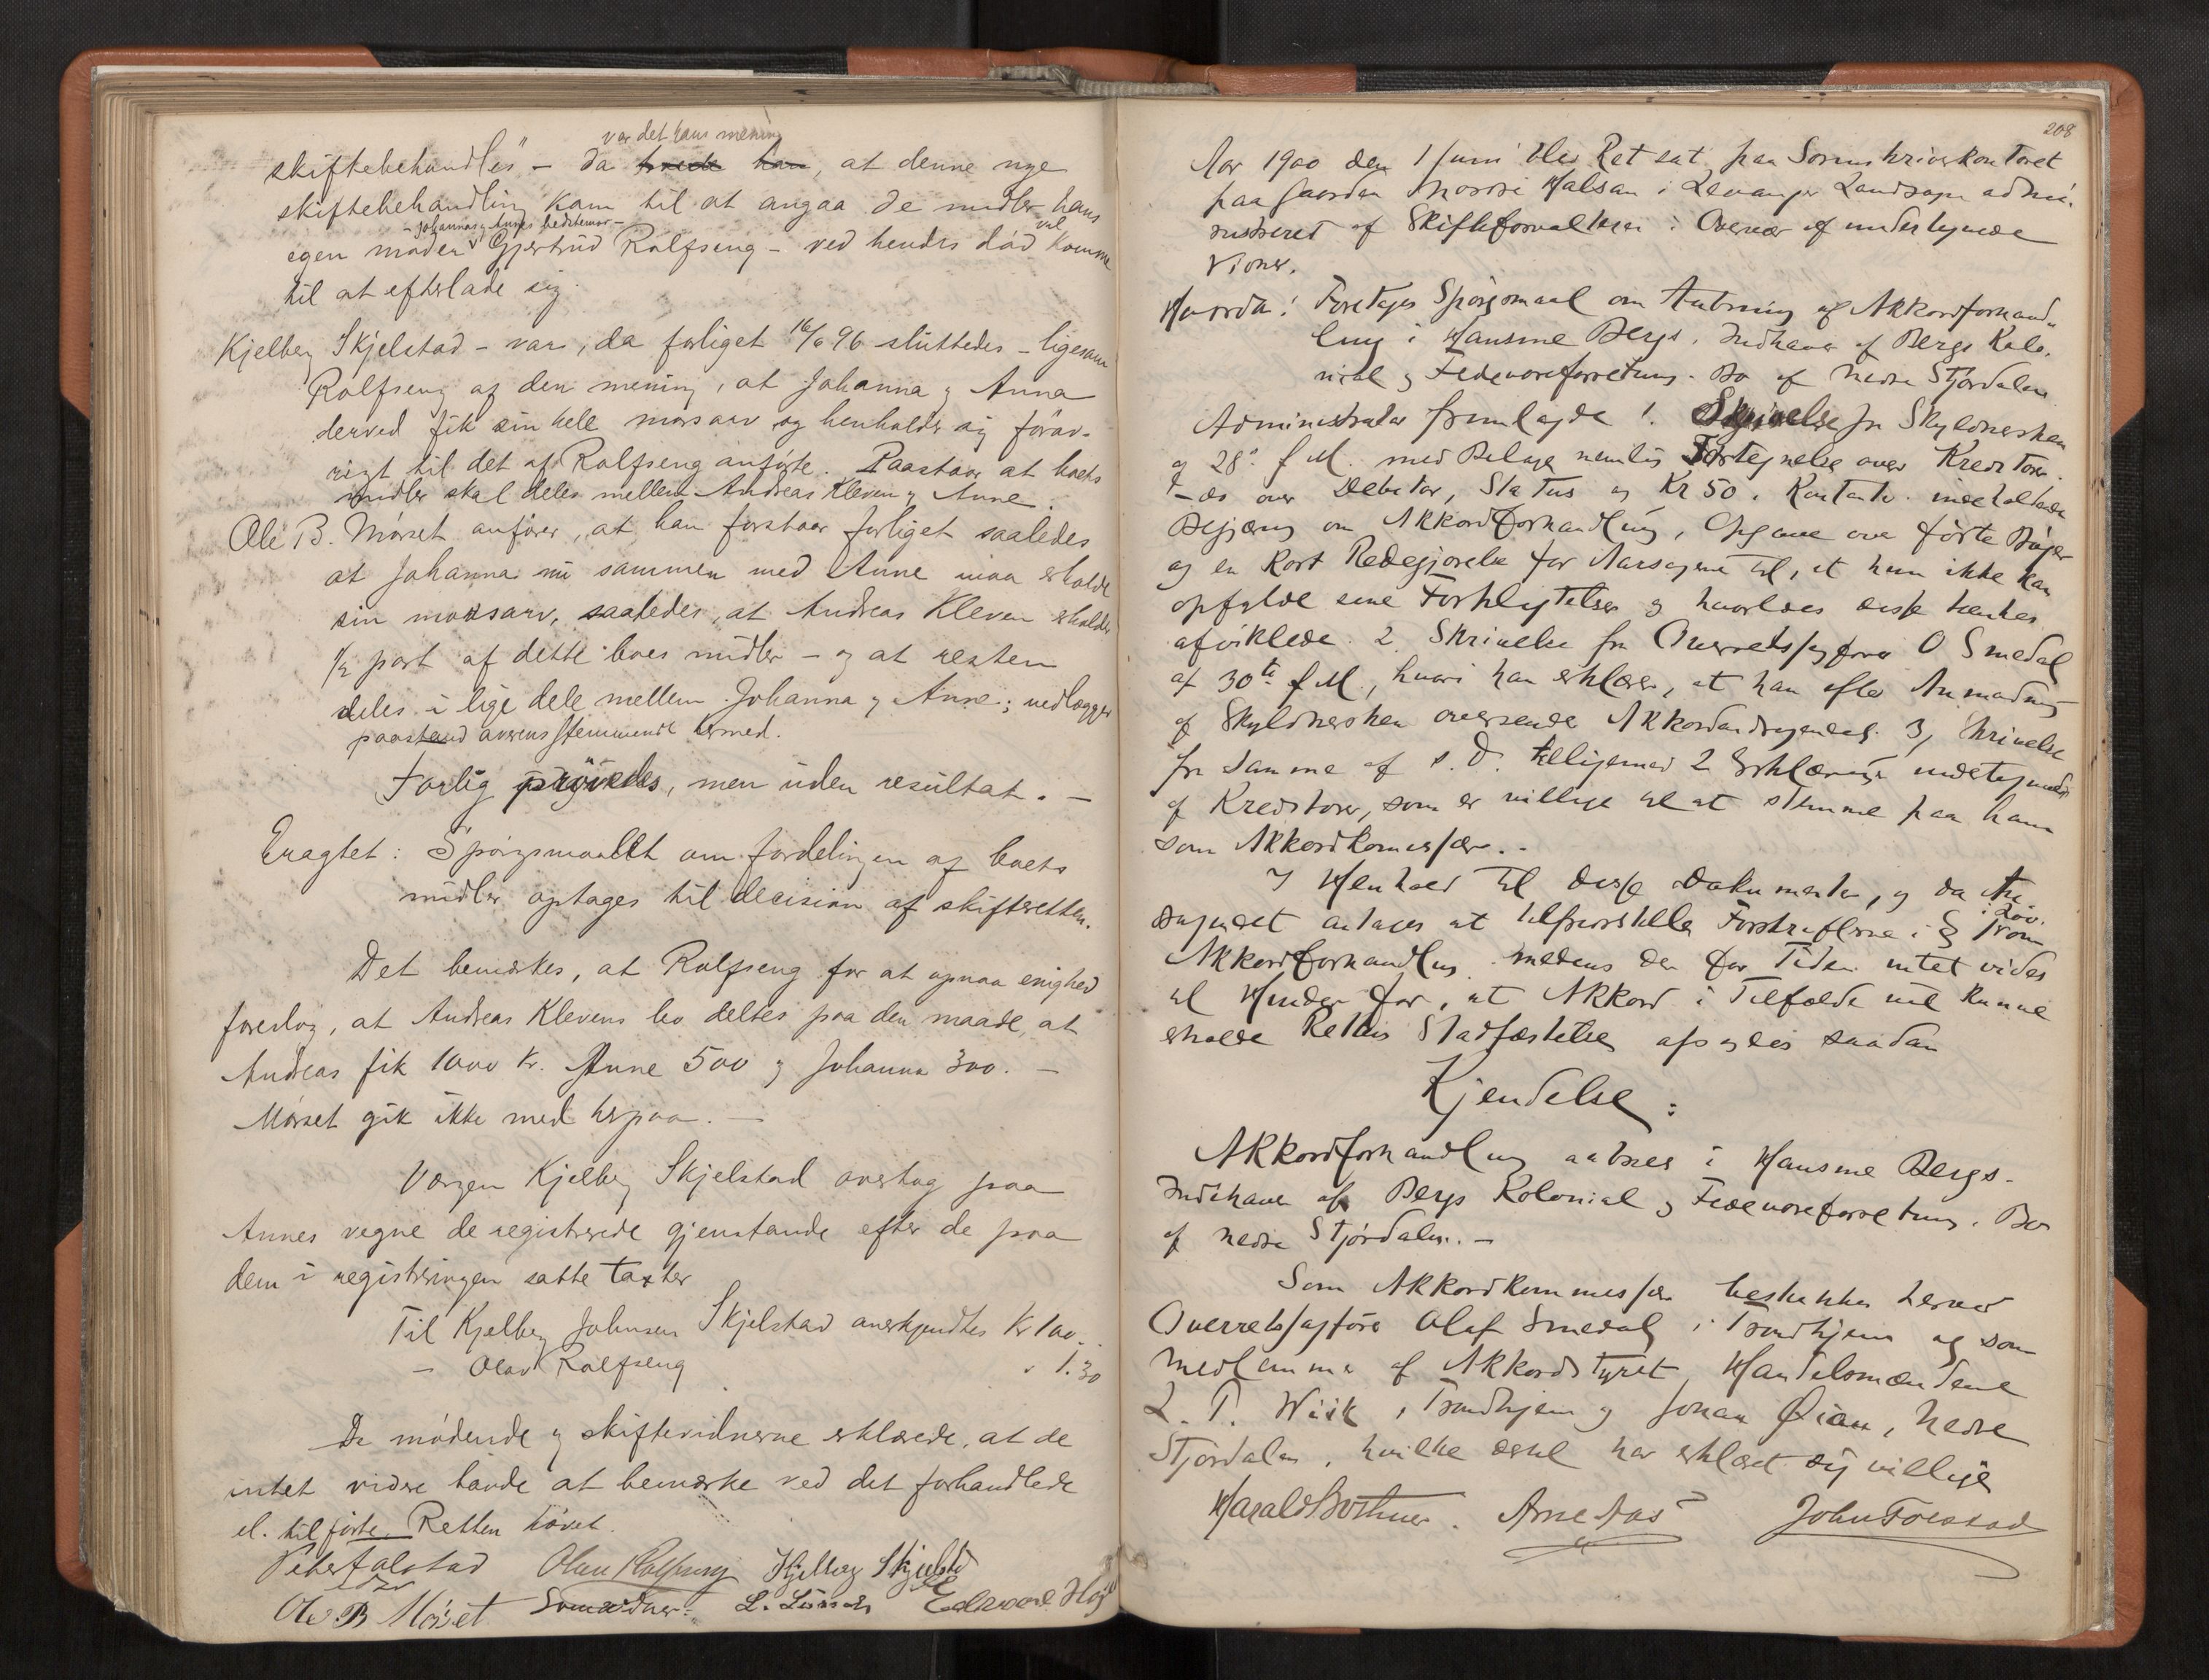 skiftebehandles" – da var det hans mening, at denne nye
skiftebehandling kam til at angaa de midler hans
egen moder – Johannas og Annes bedstemor – Gjertrud Rolfseng – ved hendes död vil komme
til at efterlade sig.
Kjelberg Skjelstad – var, da forliget 16/6 96 sluttedes – ligesom
Rolfseng af den mening, at Johanna og Anna
derved fik sin hele morsarv og henholder sig forøv-
rigt til det af Rolfseng anførte. Paastaar at boets
midler skal deles mellem Andreas Kleven og Anne.
Ole B. Mørset anfører, at han forstaar forliget saaledes
at Johanna nu sammen med Anne maa erholde
sin morsarv, saaledes, at Andreas Kleven erholder
1/2 part af dette boes midler – og at resten
deles i lige dele mellem Johanna og Anne; nedlægger
paastand overensstemmende hermed.
Forlig prøvedes, men uden resultat. –
Eragtet: Spørgsmaalet om fordelingen af boets
midler optages til decision af skifteretten.
Det bemærkes, at Rolfseng for at opnaa enighed
foreslog, at Andreas Klevens bo deltes paa den maade, at
Andreas fik 1000 kr. Anne 500 og Johanna 300. –
Mørset gik ikke med herpaa. –
Værgen Kjelberg Skjelstad overtog paa
Annes vegne de registrerede gjenstande efter de paa
dem i registreringen satte taxter
Til Kjelberg Johnsen Skjelstad anerkjendtes Kr 100.
– Olav Rolfseng " 1.30
De mødende og skiftevidnerne erklærede, at de
intet videre havde at bemærke ved det forhandlede
el. tilførte. Retten hævet.
Peter Falstad Olav Rolfseng Kjelberg Skjelstad
Ole B Mörset Som vidner: L. Edvard
208
Aar 1900 den 1 Juni blev Ret sat paa Sorenskriverkontoret
paa Gaarden Nordre Halsan i Levanger Landsogn admi-
nistreret af Skifteforvalteren i Overvær af undertegnede
Vidner.
Hvorda: Foretages Spørgsmaal om Aabning af Akkordforhand-
ling i Hansine Bergs, Indhaver af Bergs Kolo-
nial og Fedevareforretning. Bo af Nedre Stjørdalen
Administrator fremlagde 1. Skrivelse fra Skyldnersken
af 28de f. M. med Bilage nemlig Fortegnelse over Kreditorer
– do over Debitor, Status og Kr 50. Kontant. indeholdende
Begjæring om Akkordforhandling, Opgave over førte Bøger
og en kort Redegjørelse for Aarsagerne til, at hun ikke kan
opfylde sine Forpligtelser og hvorledes disse tænkes
afviklede. 2. Skrivelse fra Overretssagfører O Smedal
af 30te f. M., hvori han erklærer, at han efter Anmodning
af Skyldnersken oversender Akkordandragendet. 3, Skrivelse
fra samme af s. D. tilligemed 2 Erklæringer undertegnede
af Kreditorer, som er villige til at stemme paa ham
som Akkordkommissær. –
I Henhold til disse Dokumenter, og da An-
dragendet antages at tilfredsstille Forskrifterne i § i Lov om
Akkordforhandling medens der for Tiden intet vides
til Hinder for, at Akkord i Tilfælde vil kunne
erholde Rettens Stadfæstelse, afsagdes saadan
Kjendelse:
Akkordforhandling aabnes i Hansine Bergs.
Indehaver af Bergs Kolonial og Fedevareforretning. Bo
af Nedre Stjørdalen. –
Som Akkordkommissær beskikkes herved
Overretssagfører Olaf Smedal i Trondhjem og som
medlemmer af Akkordstyret Handelsmændene
L. T. Wiik, Trondhjem og Johan Øian, Nedre
Stjørdalen, hvilke dertil har erklæret sig villige
Harald Bothner. Arne Aas John Forstad